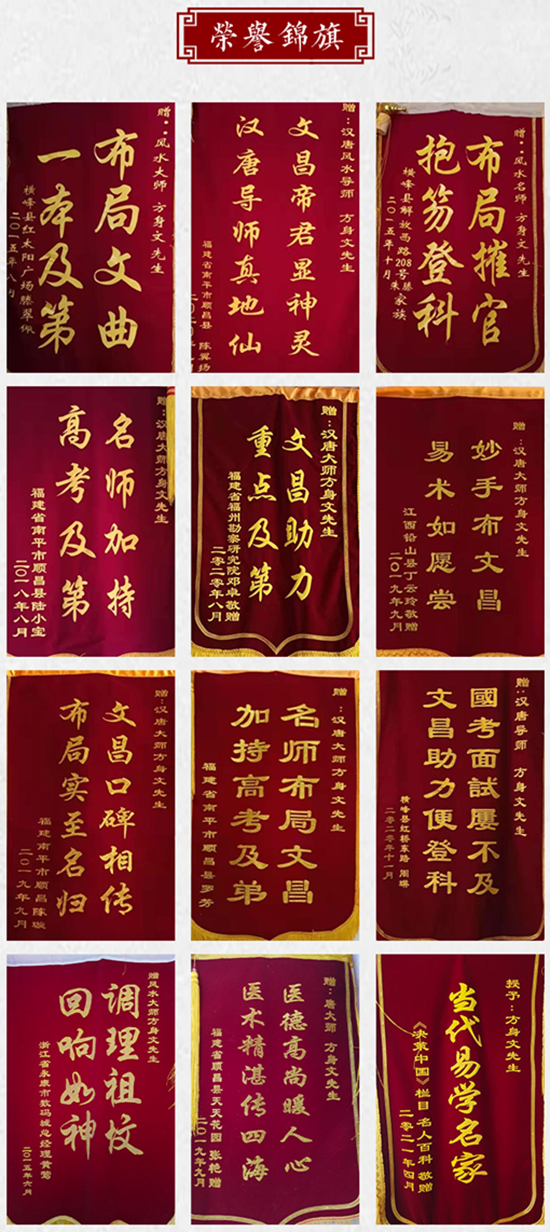 榮譽錦旗
风水大师 方身文先生
布局文曲
一本及第
横峰县红太阳广场滕翠佩
二〇一五年
赠:汉唐风水导师 方身文先生
文昌帝君显神灵
汉唐导师真地仙
福建省南平市顺昌县 陈翼扬
风水名师 方身文先生
布局摧官
抱笏登科
横峰县解放西路208号滕朱家族
二〇一五年十月
赠:汉唐大师方身文先生
名师加持
高考及第
福建省南平市顺昌县陆小宝
二〇一八年八月
赠:汉唐大师方身文先生
文昌助力
重点及第
福建省福州勘察研究院邓卓敬赠
二零二零年八月
赠:汉唐大师方身文先生
妙手布文昌
易术如愿尝
江西铅山县丁云玲敬赠
二〇一九年九月
赠:汉唐大师方身文先生
文昌口碑相传
布局实至名归
福建南平市顺昌陈璇
二〇一九年九月
赠:汉唐大师方身文先生
名师布局文昌
加持高考及弟
福建省南平市顺昌县罗芳
赠:汉唐导师 方身文先生
國考面試屢不及
文昌助力便登科
横峰县红桥东路 周琪
二〇二〇年十一月
赠风水大师方身文先生
调理祖坟
回响如神
浙江省永康市数码城总经理黄莺
二〇一五年六月
赠:唐大师 方身文先生
医德高尚暖人心
医术精湛传四海
福建省顺昌县天天花园 张艳赠
二〇一九年九月
授予:方身文先生
当代易学名家
《求索中国》栏目 名人百科 敬赠
二〇二一年四月